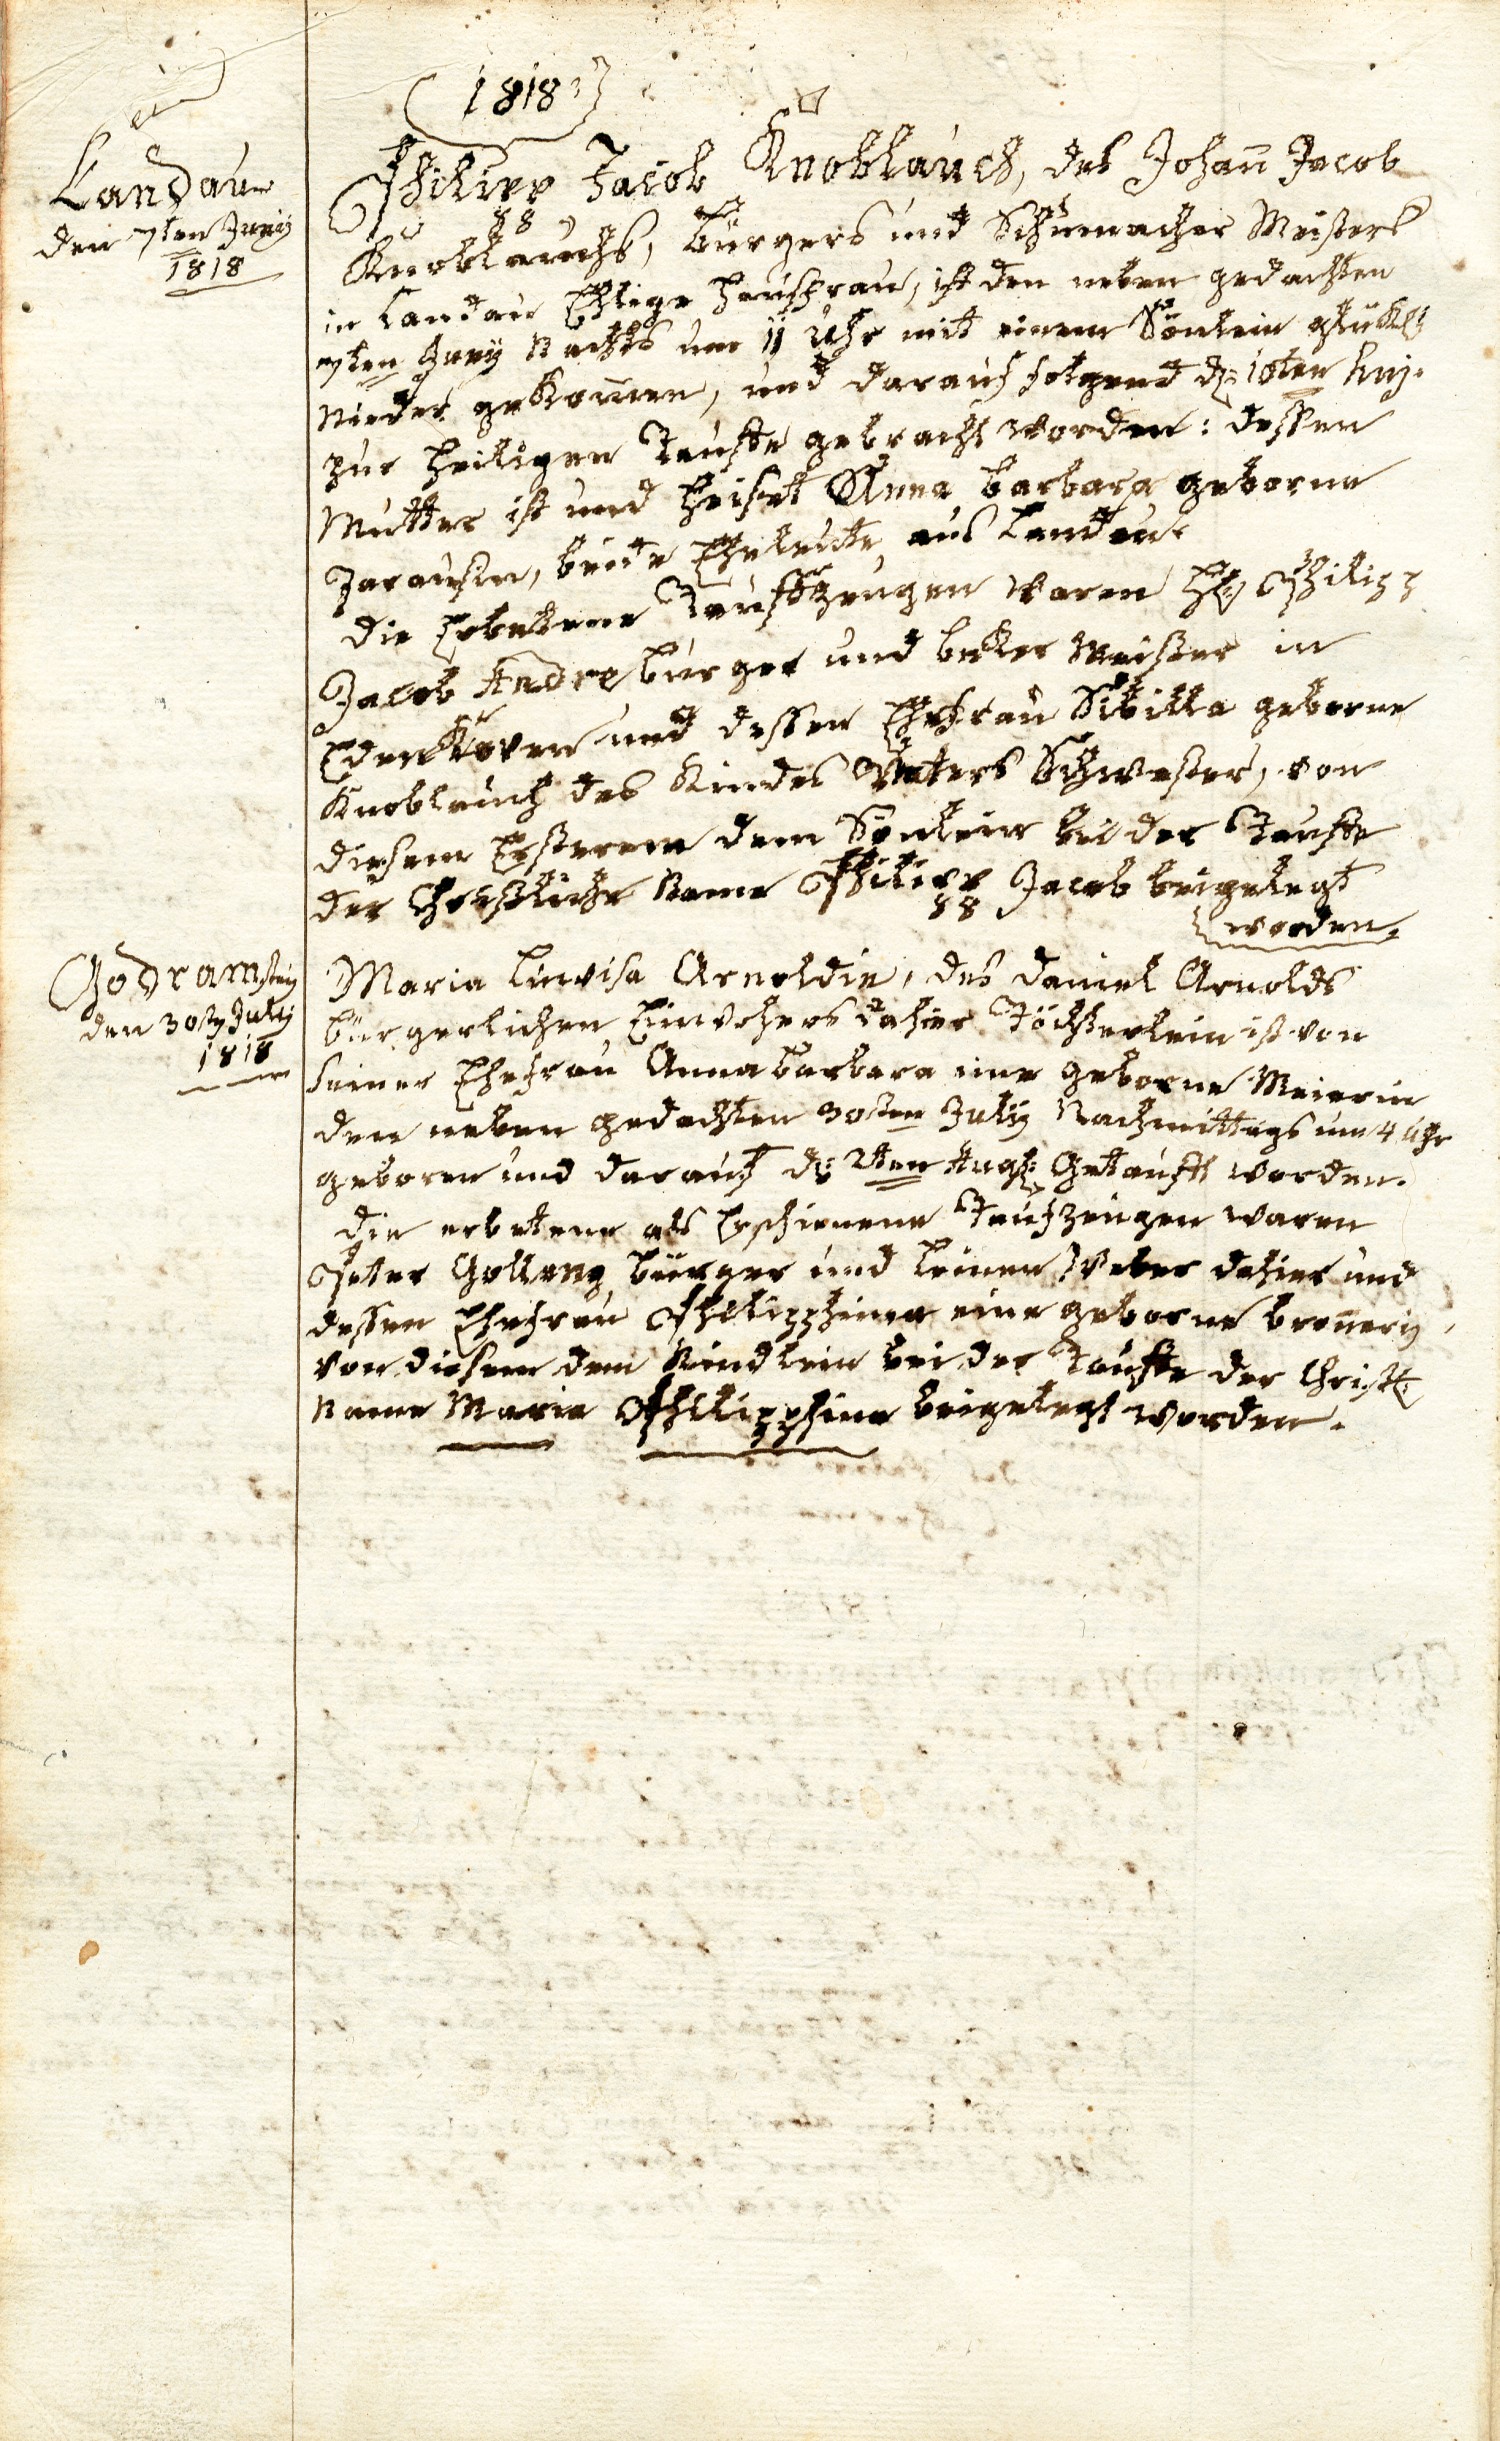 (1818)
Landau
den 7ten Juny
1818
Philipp Jacob Knoblauch, des Johañ Jacob
Knoblauchs, Bürgers und Schumacher Meisters
in Landau Ehlige Hausfrau, ist den neben gedachten
7ten Juny Nachts um 11 Uhr mit einem Sönlein glükl:
Nieder gekom̄en, und darauf folgend d: 10ten huj.
zur heiligen Tauffe gebracht worden: dessen
Mutter ist und heiset Anna Barbara geborne
beide Eheleute aus Landau.
Die Erbettene Tauffzeugen waren H: Philipp
Jacob Andre Burger und beker Meister in
Edenkoven und dessen Ehefrau Sibilla geborne
Knoblauch des Kindes Vaters Schwester, von
diesem Ersterem dem Sönlein bei der Tauffe
der Christliche Name Philipp Jacob beigelegt
worden.
Godramstein
den 30st July
1818
Maria Luwisa Arnoldin, des Daniel Arnolds
bürgerlichen Einwohers dahier Töchterlein ist von
seiner Ehefrau Anna Barbara eine geborne Meierin
den neben gedachten 30sten July Nachmittags um 4 Uhr
geboren und darauf d: 2ten Augst: Getauft worden.
Die erbetene als Erschienene Taufzeugen waren
Peter Gollang Bürger und Leinen Weber dahier und
dessen Ehefrau Philipphina eine geborne
von diesem dem Kindlein bei der Tauffe der Christl:
Name Maria Philippphina beigelegt worden.